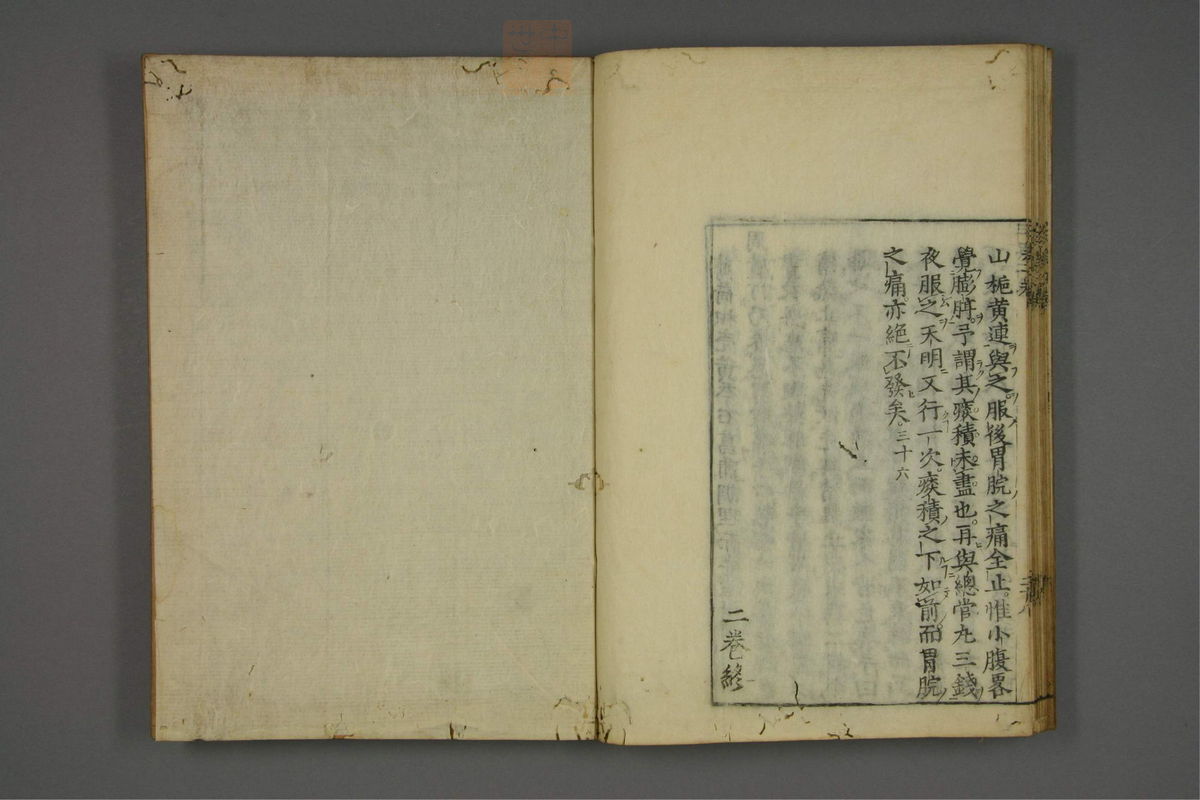 山栀黄連與之服後胃脘之痛全止惟小腹畧
覺膨脝予謂其痰積未盡也再與總管丸三錢
夜服之天明又行一次痰積之下如前而胃脘
之痛亦絕不發矣三十六
二卷終